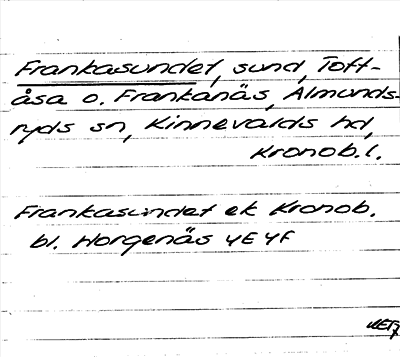 Frankasundet, sund, Toft-
åsa o. Frankanäs, Almunds-
ryds sn, Kinnevalds hd,
Kronob. l.
Frankasundet ek Kronob.
bl. Horgenäs 4E4F